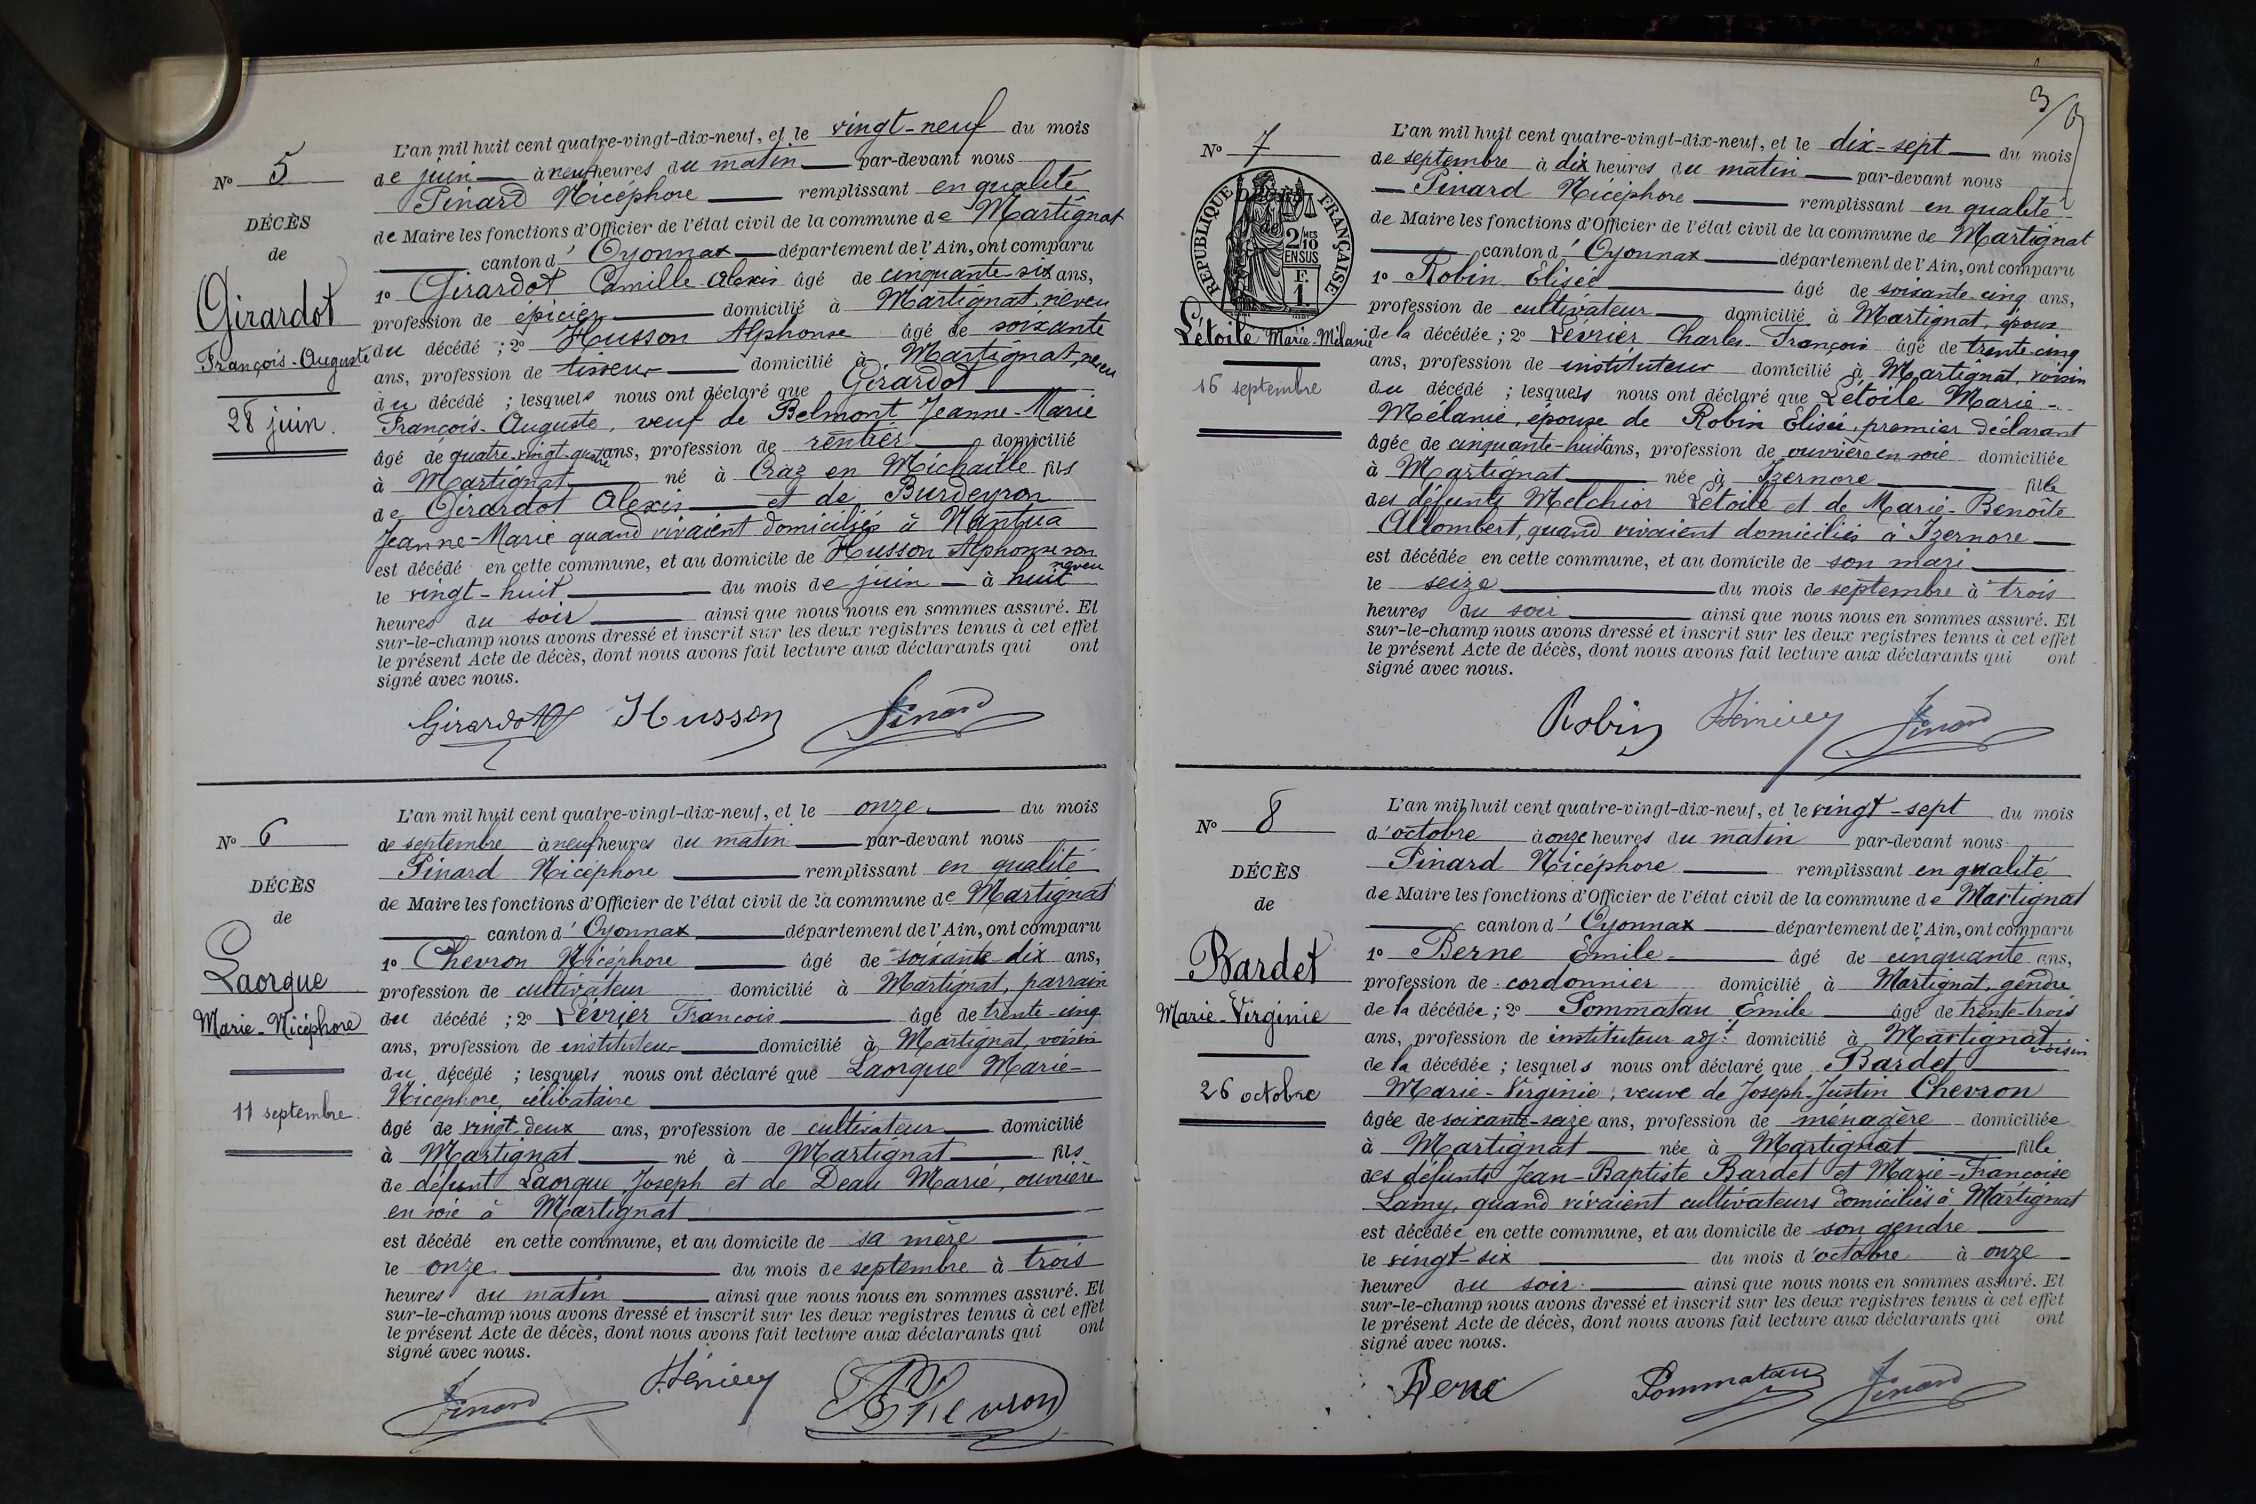 N° 5
DÉCÈS
de
Girardot
François-Auguste
28 juin.
L'an mil huit cent quatre-vingt-dix-neuf, et le vingt-neuf du mois
de juin à neuf heures du matin par-devant nous
Pinard Nicéphore remplissant en qualité
de Maire les fonctions d'Officier de l'état civil de la commune de Martignat
canton d'Oyonnax département de l'Ain, ont comparu
1° Girardot Camille Alexis âgé de cinquante-six ans,
profession de épicier domicilié à Martignat, neveu
du décédé ; 2° Husson Alphonse âgé de soixante
ans, profession de tisseur domicilié à Martignat, neveu
du décédé ; lesquels nous ont déclaré que Girardot
François-Auguste, veuf de Belmont Jeanne-Marie
âgé de quatre-vingt-quatre ans, profession de rentier domicilié
à Martignat né à Craz en Michaille fils
de Girardot Alexis et de Burdeyron
Jeanne-Marie quand vivaient domiciliés à Nantua
est décédé en cette commune, et au domicile de Husson Alphonse son neveu
le vingt-huit du mois de juin à huit
heures du soir ainsi que nous nous en sommes assuré. Et
sur-le-champ nous avons dressé et inscrit sur les deux registres tenus à cet effet
le présent Acte de décès, dont nous avons fait lecture aux déclarants qui ont
signé avec nous.
Girardot Husson Pinard
N° 6
DÉCÈS
de
Laorque
Marie-Nicéphore
11 septembre.
L'an mil huit cent quatre-vingt-dix-neuf, et le onze du mois
de septembre à neuf heures du matin par-devant nous
Pinard Nicéphore remplissant en qualité
de Maire les fonctions d'Officier de l'état civil de la commune de Martignat
canton d'Oyonnax département de l'Ain, ont comparu
1° Chevron Nicéphore âgé de soixante dix ans,
profession de cultivateur domicilié à Martignat, parrain
du décédé ; 2° Févrièr François âgé de trente-cinq
ans, profession de instituteur domicilié à Martignat, voisin
du décédé ; lesquels nous ont déclaré que Laorque Marie-
Nicéphore, célibataire
âgé de vingt-deux ans, profession de cultivateur domicilié
à Martignat né à Martignat fils
de défunt Laorque Joseph et de Deau Marie, ouvrière
en soie à Martignat
est décédé en cette commune, et au domicile de sa mère
le onze du mois de septembre à trois
heures du matin ainsi que nous nous en sommes assuré. Et
sur-le-champ nous avons dressé et inscrit sur les deux registres tenus à cet effet
le présent Acte de décès, dont nous avons fait lecture aux déclarants qui ont
signé avec nous.
Pinard Chevron
3
N° 7
RÉPUBLIQUE FRANÇAISE
2/10 MES
EN SUS
F.
1.
Létoile Marie-Mélanie
16 septembre
L'an mil huit cent quatre-vingt-dix-neuf, et le dix-sept du mois
de septembre à dix heures du matin par-devant nous
Pinard Nicéphore remplissant en qualité
de Maire les fonctions d'Officier de l'état civil de la commune de Martignat
canton d'Oyonnax département de l'Ain, ont comparu
1° Robin Elisée âgé de soixante cinq ans,
profession de cultivateur domicilié à Martignat, époux
de la décédée ; 2° Févrièr Charles-François âgé de trente-cinq
ans, profession de instituteur domicilié à Martignat, voisin
du décédé ; lesquels nous ont déclaré que Létoile Marie-
Mélanie, épouse de Robin Elisée, premier déclarant
âgée de cinquante-huit ans, profession de ouvrière en soie domiciliée
à Martignat née à Izernore fille
des défunts Melchior Létoile et de Marie-Benoîte
Allombert, quand vivaient domiciliés à Izernore
est décédée en cette commune, et au domicile de son mari
le seize du mois de septembre à trois
heures du soir ainsi que nous nous en sommes assuré. Et
sur-le-champ nous avons dressé et inscrit sur les deux registres tenus à cet effet
le présent Acte de décès, dont nous avons fait lecture aux déclarants qui ont
signé avec nous.
Robin Pinard
N° 8
DÉCÈS
de
Bardet
Marie-Virginie
26 octobre
L'an mil huit cent quatre-vingt-dix-neuf, et le vingt-sept du mois
d'octobre à onze heures du matin par-devant nous
Pinard Nicéphore remplissant en qualité
de Maire les fonctions d'Officier de l'état civil de la commune de Martignat
canton d'Oyonnax département de l'Ain, ont comparu
1° Berne Emile âgé de cinquante ans,
profession de cordonnier domicilié à Martignat, gendre
de la décédée ; 2° Pommatau Emile âgé de trente-trois
ans, profession de instituteur adjt domicilié à Martignat voisin
de la décédée ; lesquels nous ont déclaré que Bardet
Marie-Virginie, veuve de Joseph-Justin Chevron
âgée de soixante-seize ans, profession de ménagère domiciliée
à Martignat née à Martignat fille
des défunts Jean-Baptiste Bardet et Marie-Françoise
Lamy, quand vivaient cultivateurs domiciliés à Martignat
est décédée en cette commune, et au domicile de son gendre
le vingt-six du mois d'octobre à onze
heure du soir ainsi que nous nous en sommes assuré. Et
sur-le-champ nous avons dressé et inscrit sur les deux registres tenus à cet effet
le présent Acte de décès, dont nous avons fait lecture aux déclarants qui ont
signé avec nous.
Berne Pommatau Pinard